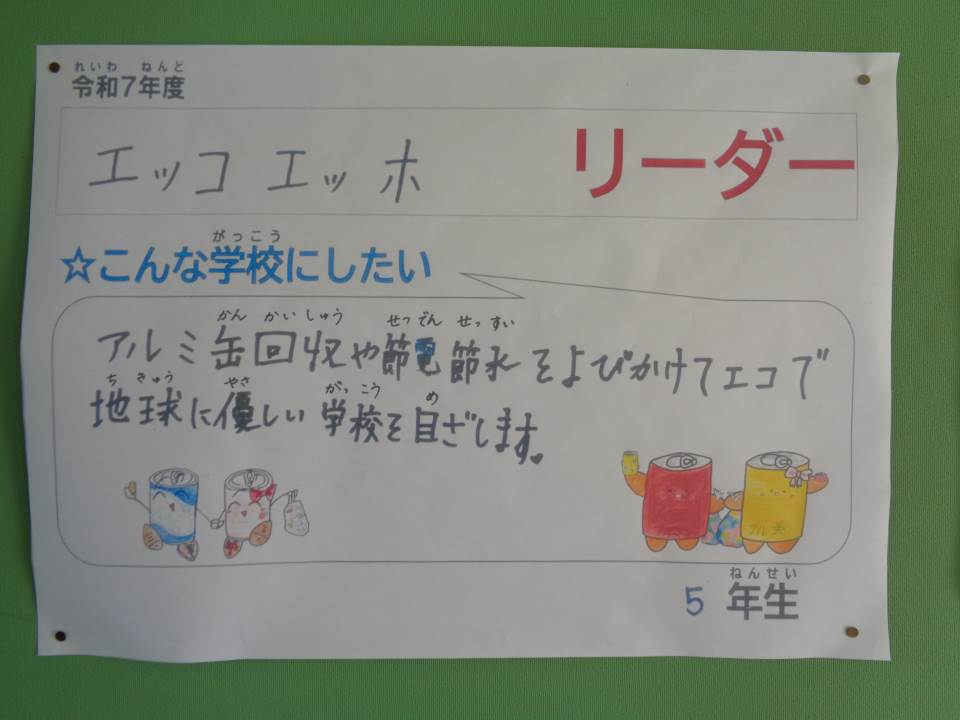 れいわ ねんど
令和7年度
エッコ エッホ リーダー
がっこう
☆こんな学校にしたい
かん かいしゅう せつでん せっすい
アルミ缶回収や節電節水をよびかけてエコで
ち きゅう やさ がっこう め
地球に優しい学校を目ざします。
アル美
ねんせい
5 年生